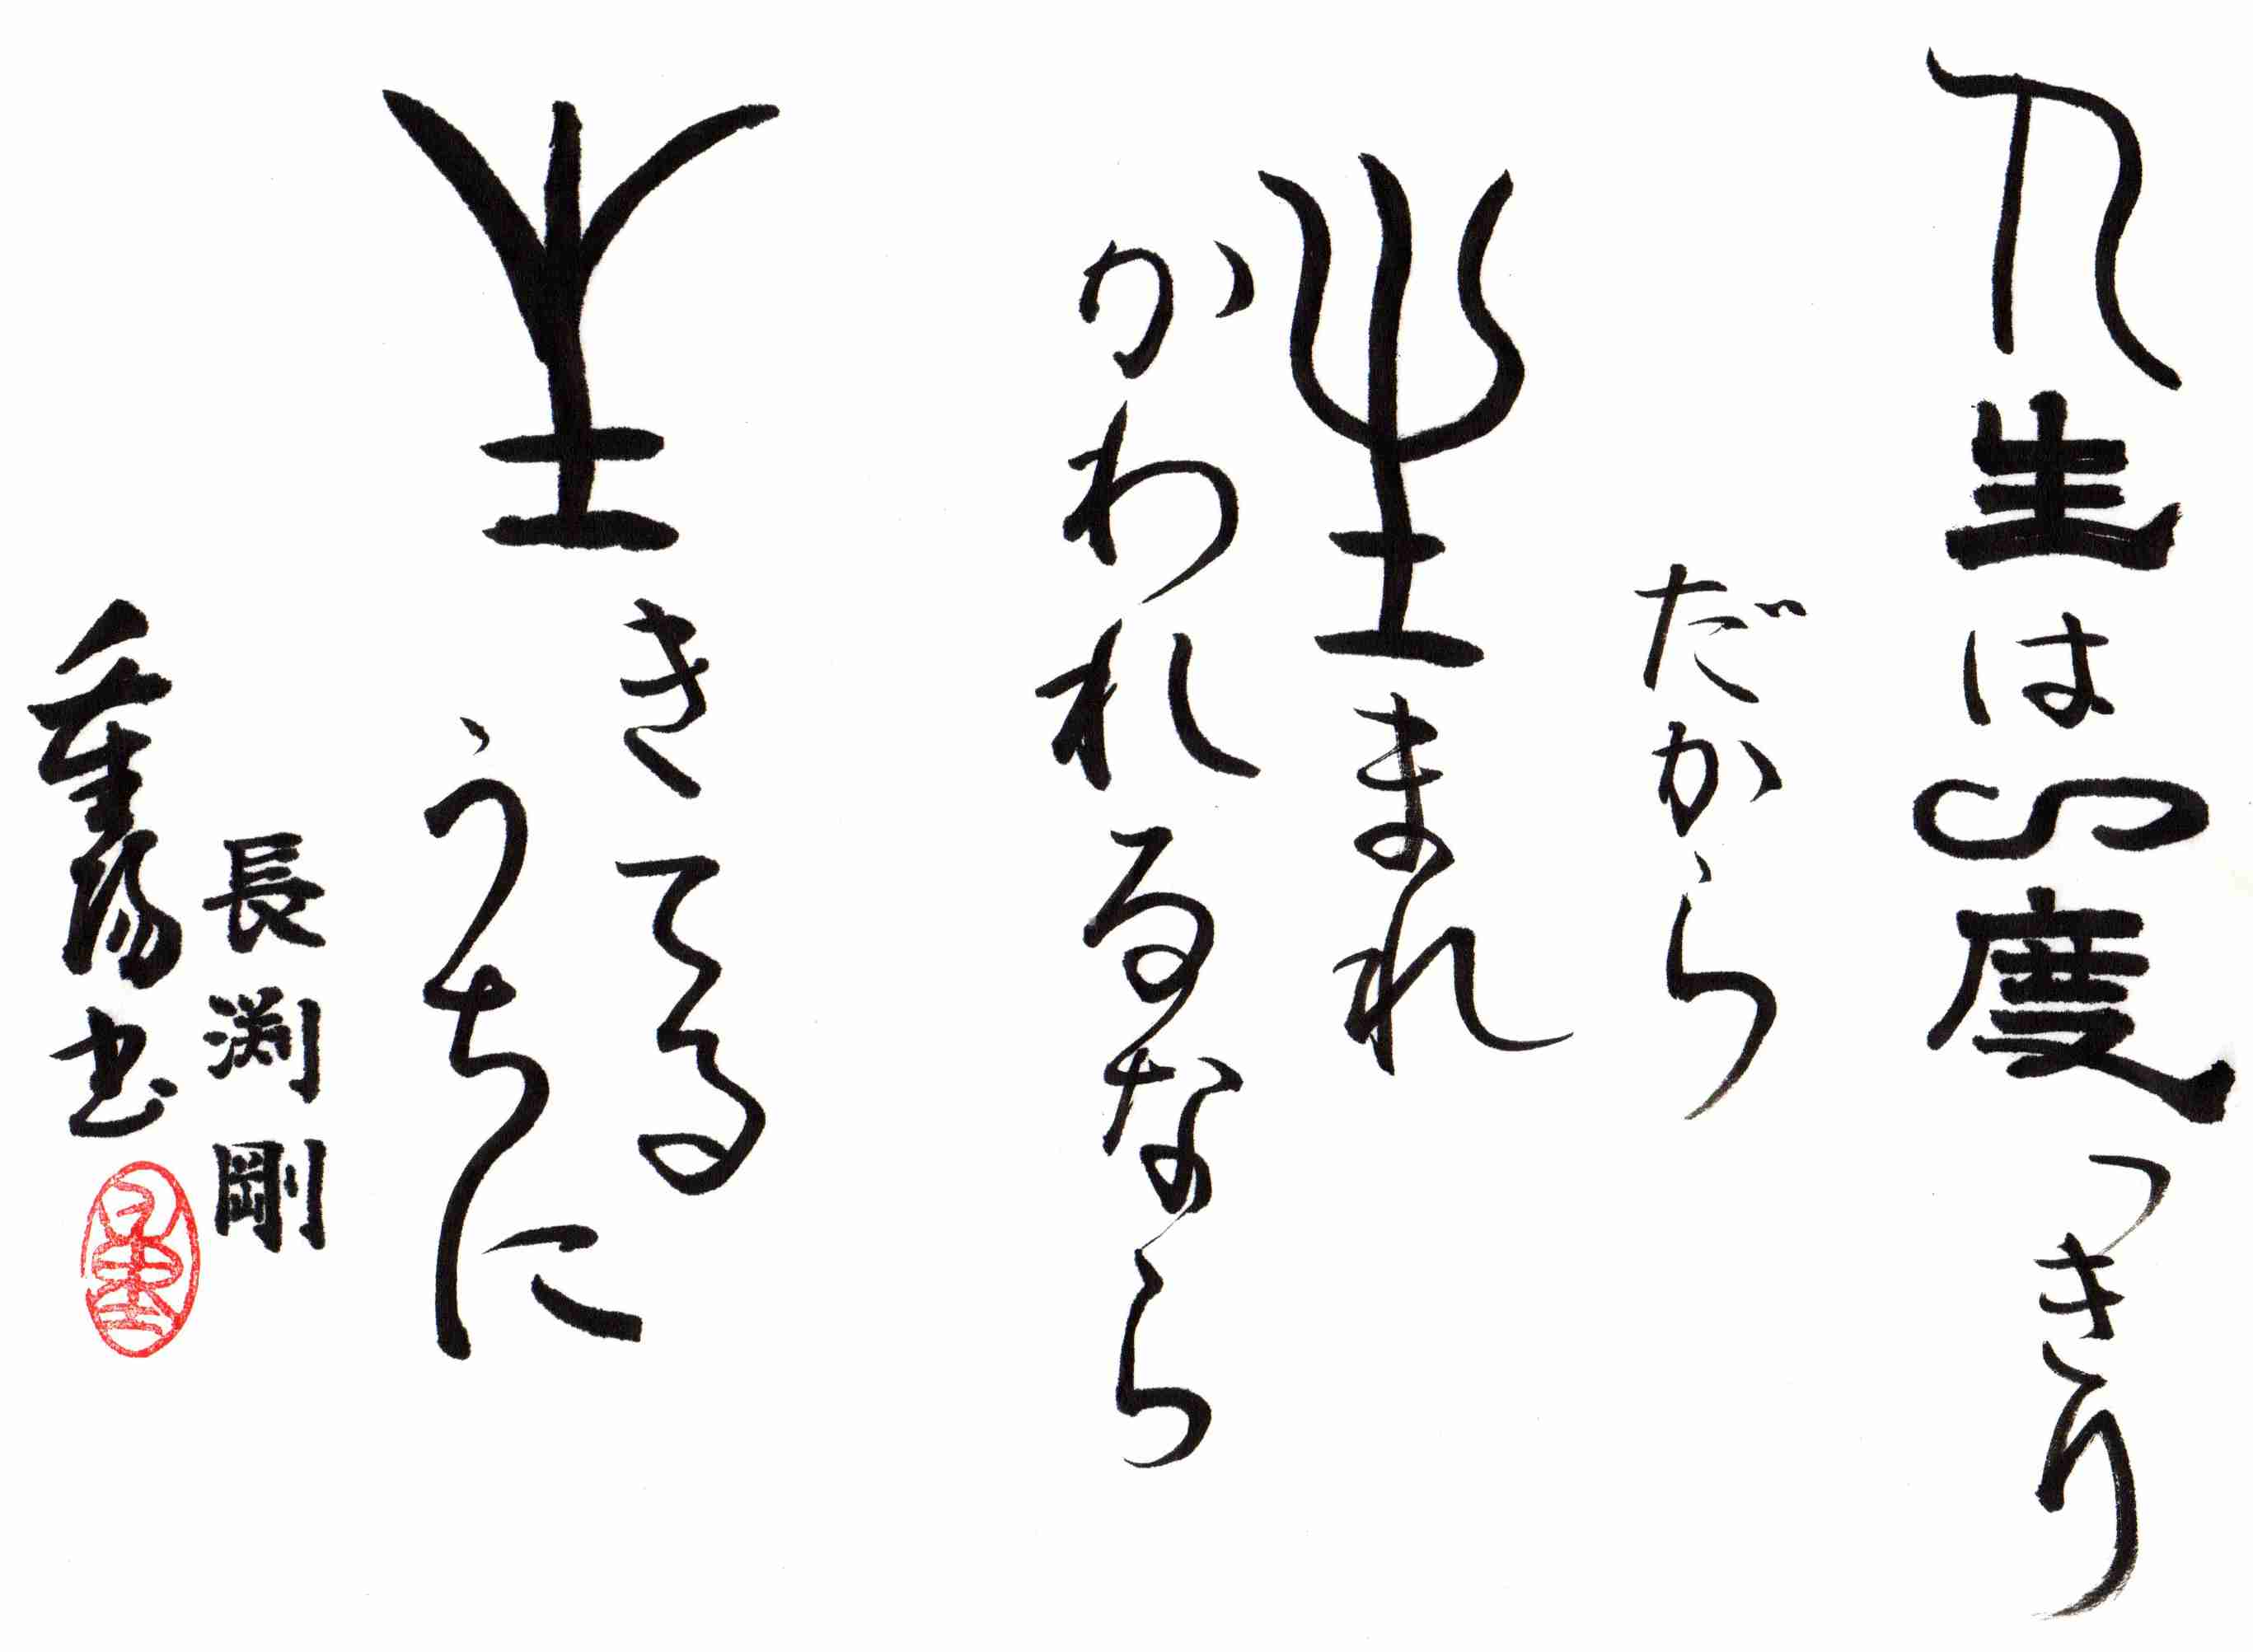 人生は一度っきり
だから
生まれ
かわれるなら
生きてる
うちに
長渕剛
書